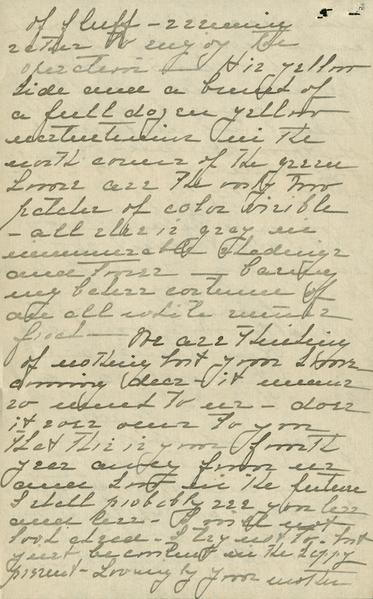 of fluff - seeming
rather to enjoy the
operation - His yellow
side and a bunch of
a full dozen yellow
nasturtiums in the
north corner of the green
house are the only two
patches of color visible
- all else is gray in
innumerable shadings
and tones -
my
are all white
frock - We are thinking
of nothing but your home
coming dear - it means
so much to us - does
it ever occur to you
that this is your fourth
year away from us
and that in the future
I shall probably see you less
and less - I must not
look ahead - I try not to - but
just be content in the happy
present - Lovingly your mother